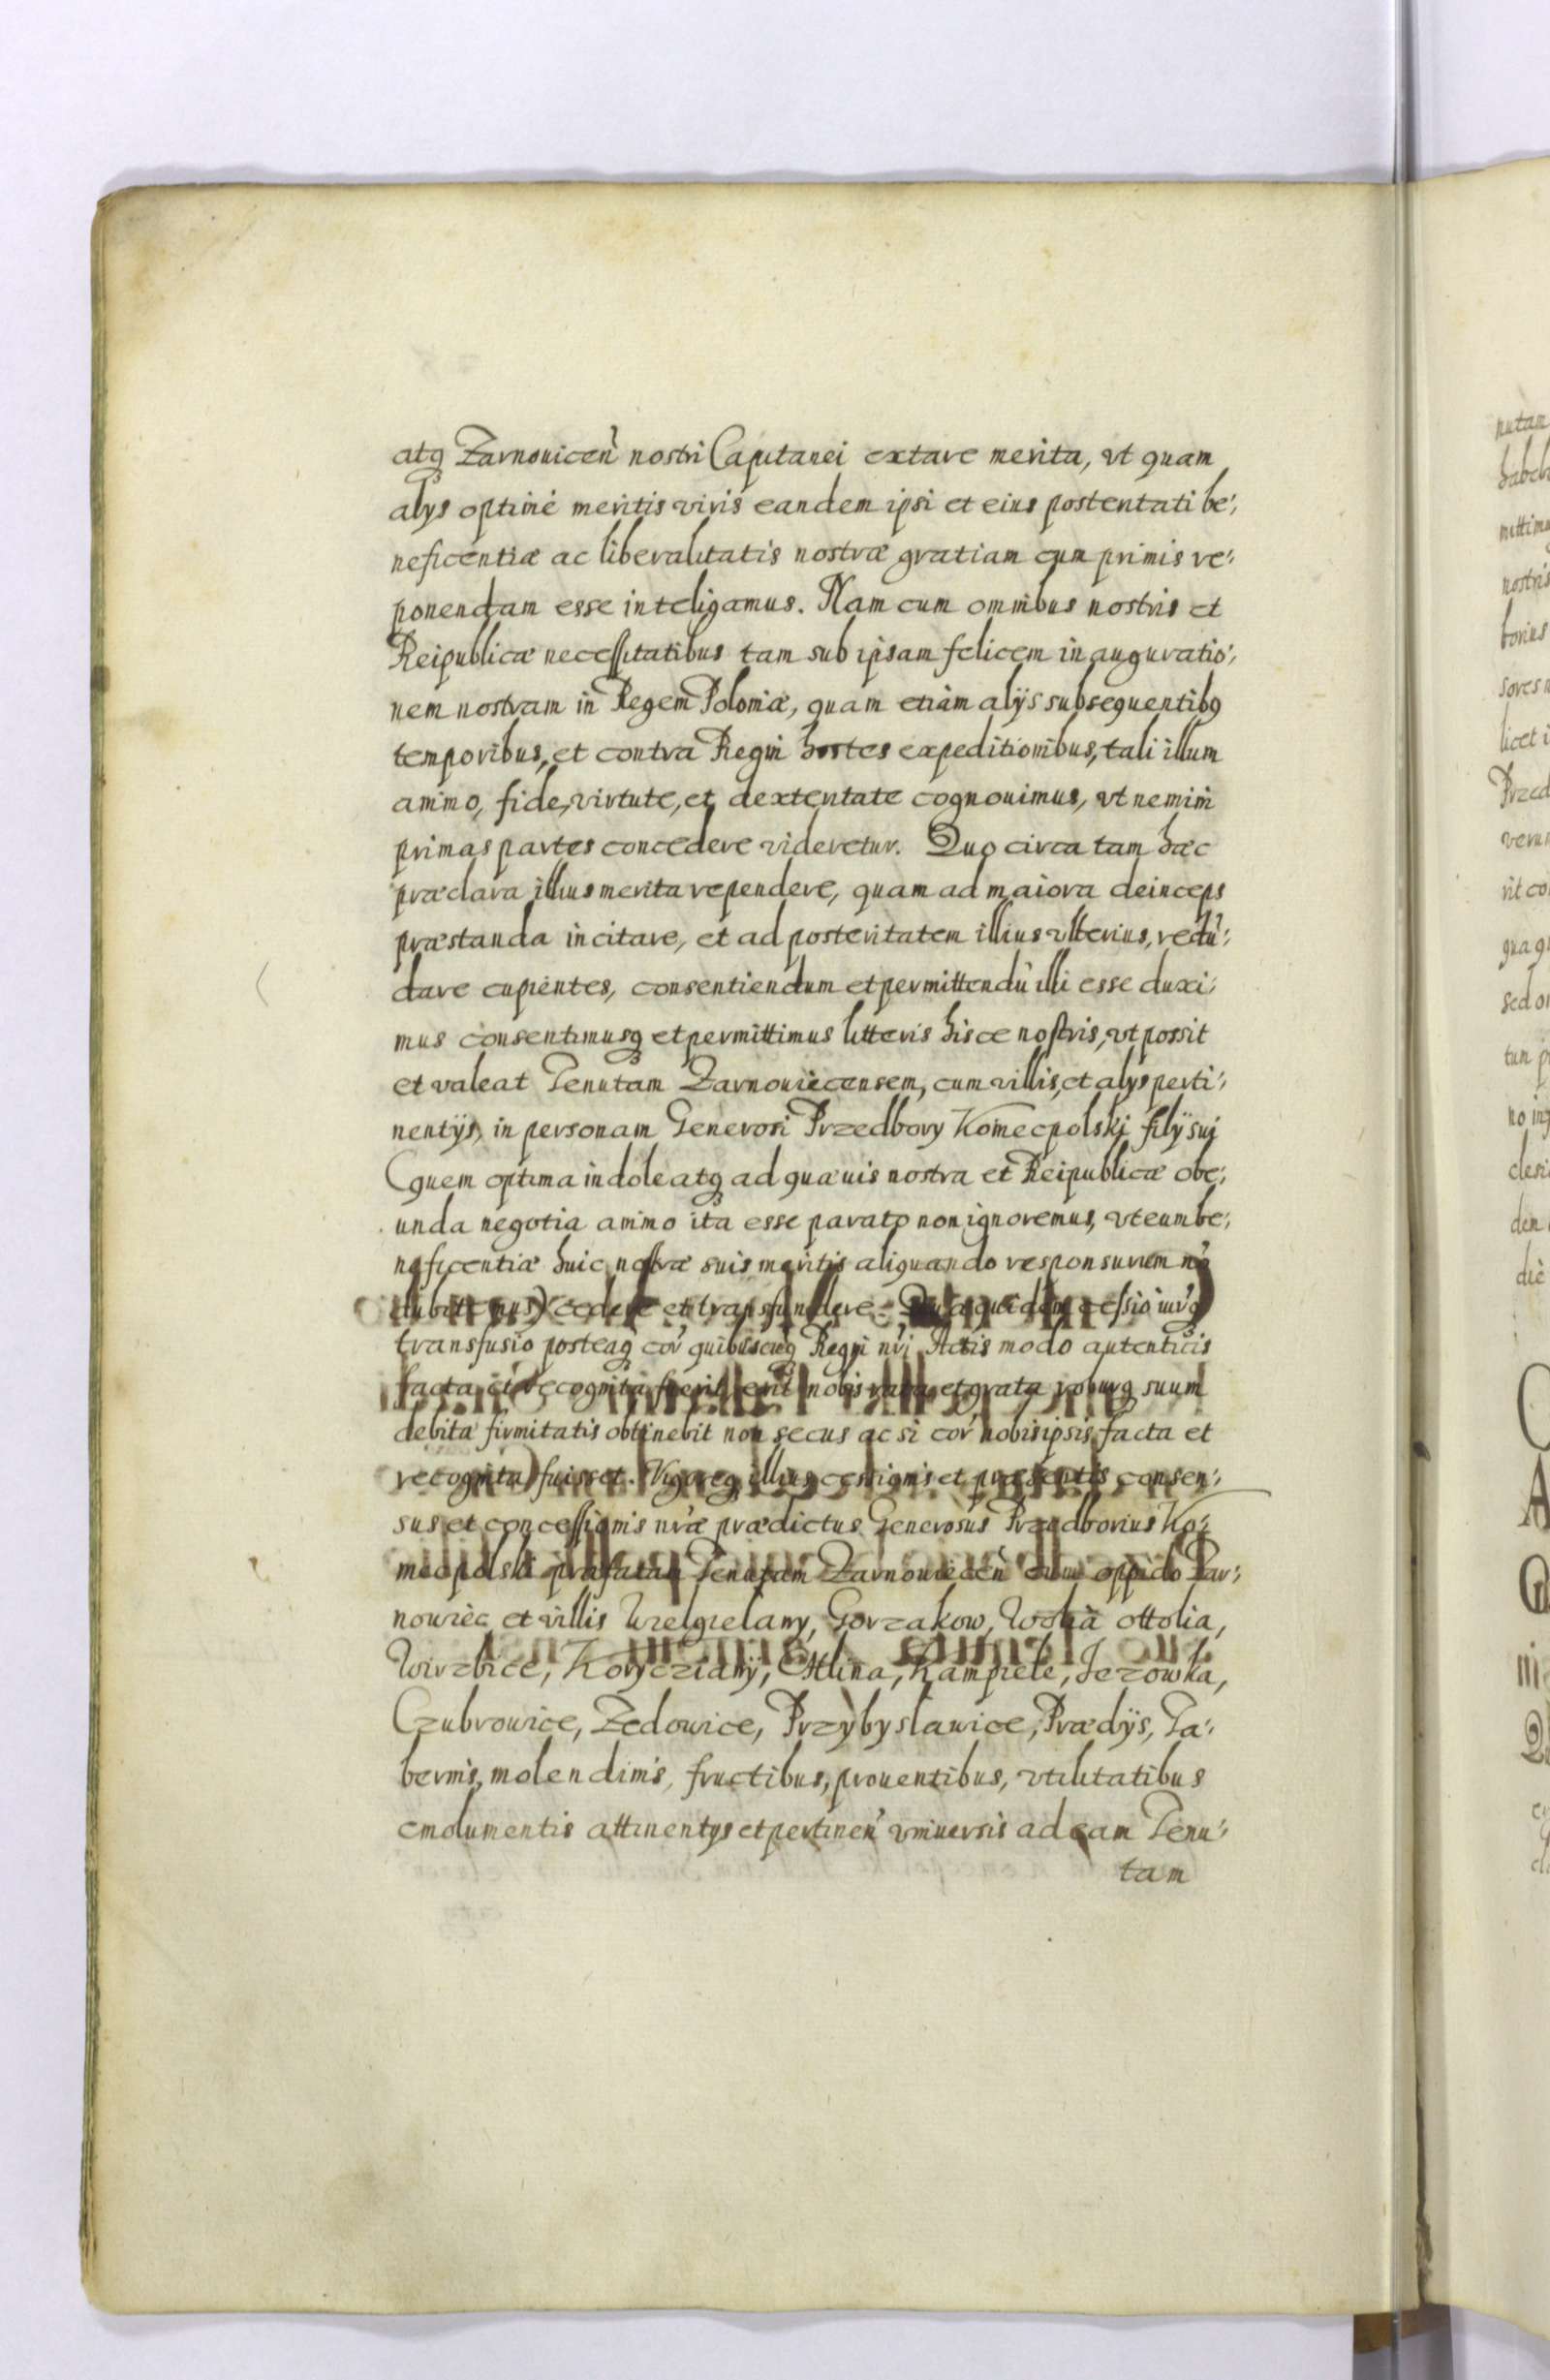 atq Zarnouicen̄ nostri Capitanei extare merita, vt quam
alys optime meritis viris eandem ipsi et eius posteritati be:
neficentiæ ac liberalitatis nostræ gratiam cum primis re:
ponendam esse inteligamus. Nam cum omnibus nostris et
Reipublicæ necessitatibus tam sub ipsam felicem inauguratio:
nem nostram in Regem Poloniæ, quam etiam alÿs subsequentibq
temporibus, et contra Regni hostes expeditionibus, tali illum
animo, fide, virtute, et dexteritate cognouimus, vt nemini
primas partes concedere videretur. Quo circa tam hæc
præclara illius merita rependere, quam ad maiora deinceps
præstanda incitare, et ad posteritatem illius vlterius, redū:
dare cupientes, consentiendum et permittendū illi esse duxi:
mus consentimusq et permittimus litteris hisce nostris, vt possit
et valeat Tenutam Zarnouiecensem, cum villis, et alys perti:
nentÿs, in personam Generosi Przedbory Koniecpolskj filÿ suj
(quem optima indole atq ad quæuis nostra et Reipublicæ obe:
unda negotia animo ita esse parato non ignoremus, vt eum be:
neficentiæ huic nostræ suis meritis aliquando responsurum nō
dubitemus) cedere et transfundere. Quæ quidem cessio iurq
transfusio posteaq cor̄ quibuscunq Regni nrj Actis modo autenticis
facta et recognita fuerit, erit nobis rata et grata roburq suum
debitæ firmitatis obtinebit non secus ac si cor̄ nobis ipsis facta et
recognita fuisset. Vigoreq illius cessionis et præsentis consen:
sus et concessionis nræ prædictus Generosus Przedborius Ko:
niecpolski præfatam Tenutam Zarnouiecen̄ cum oppido Zar:
nouiec et villis Wielgielany, Gorzakow, Wolia ottolia,
Wirzbice, Koryczianÿ, Chlina, Kampiele, Jezowka,
Czubrowice, Zedowice, Przybyslawice, Prædÿs, Ta:
bernis, molendinis, fructibus, prouentibus, vtilitatibus
emolumentis attinentys et pertinen̄ vniuersis ad eam Tenu:
tam